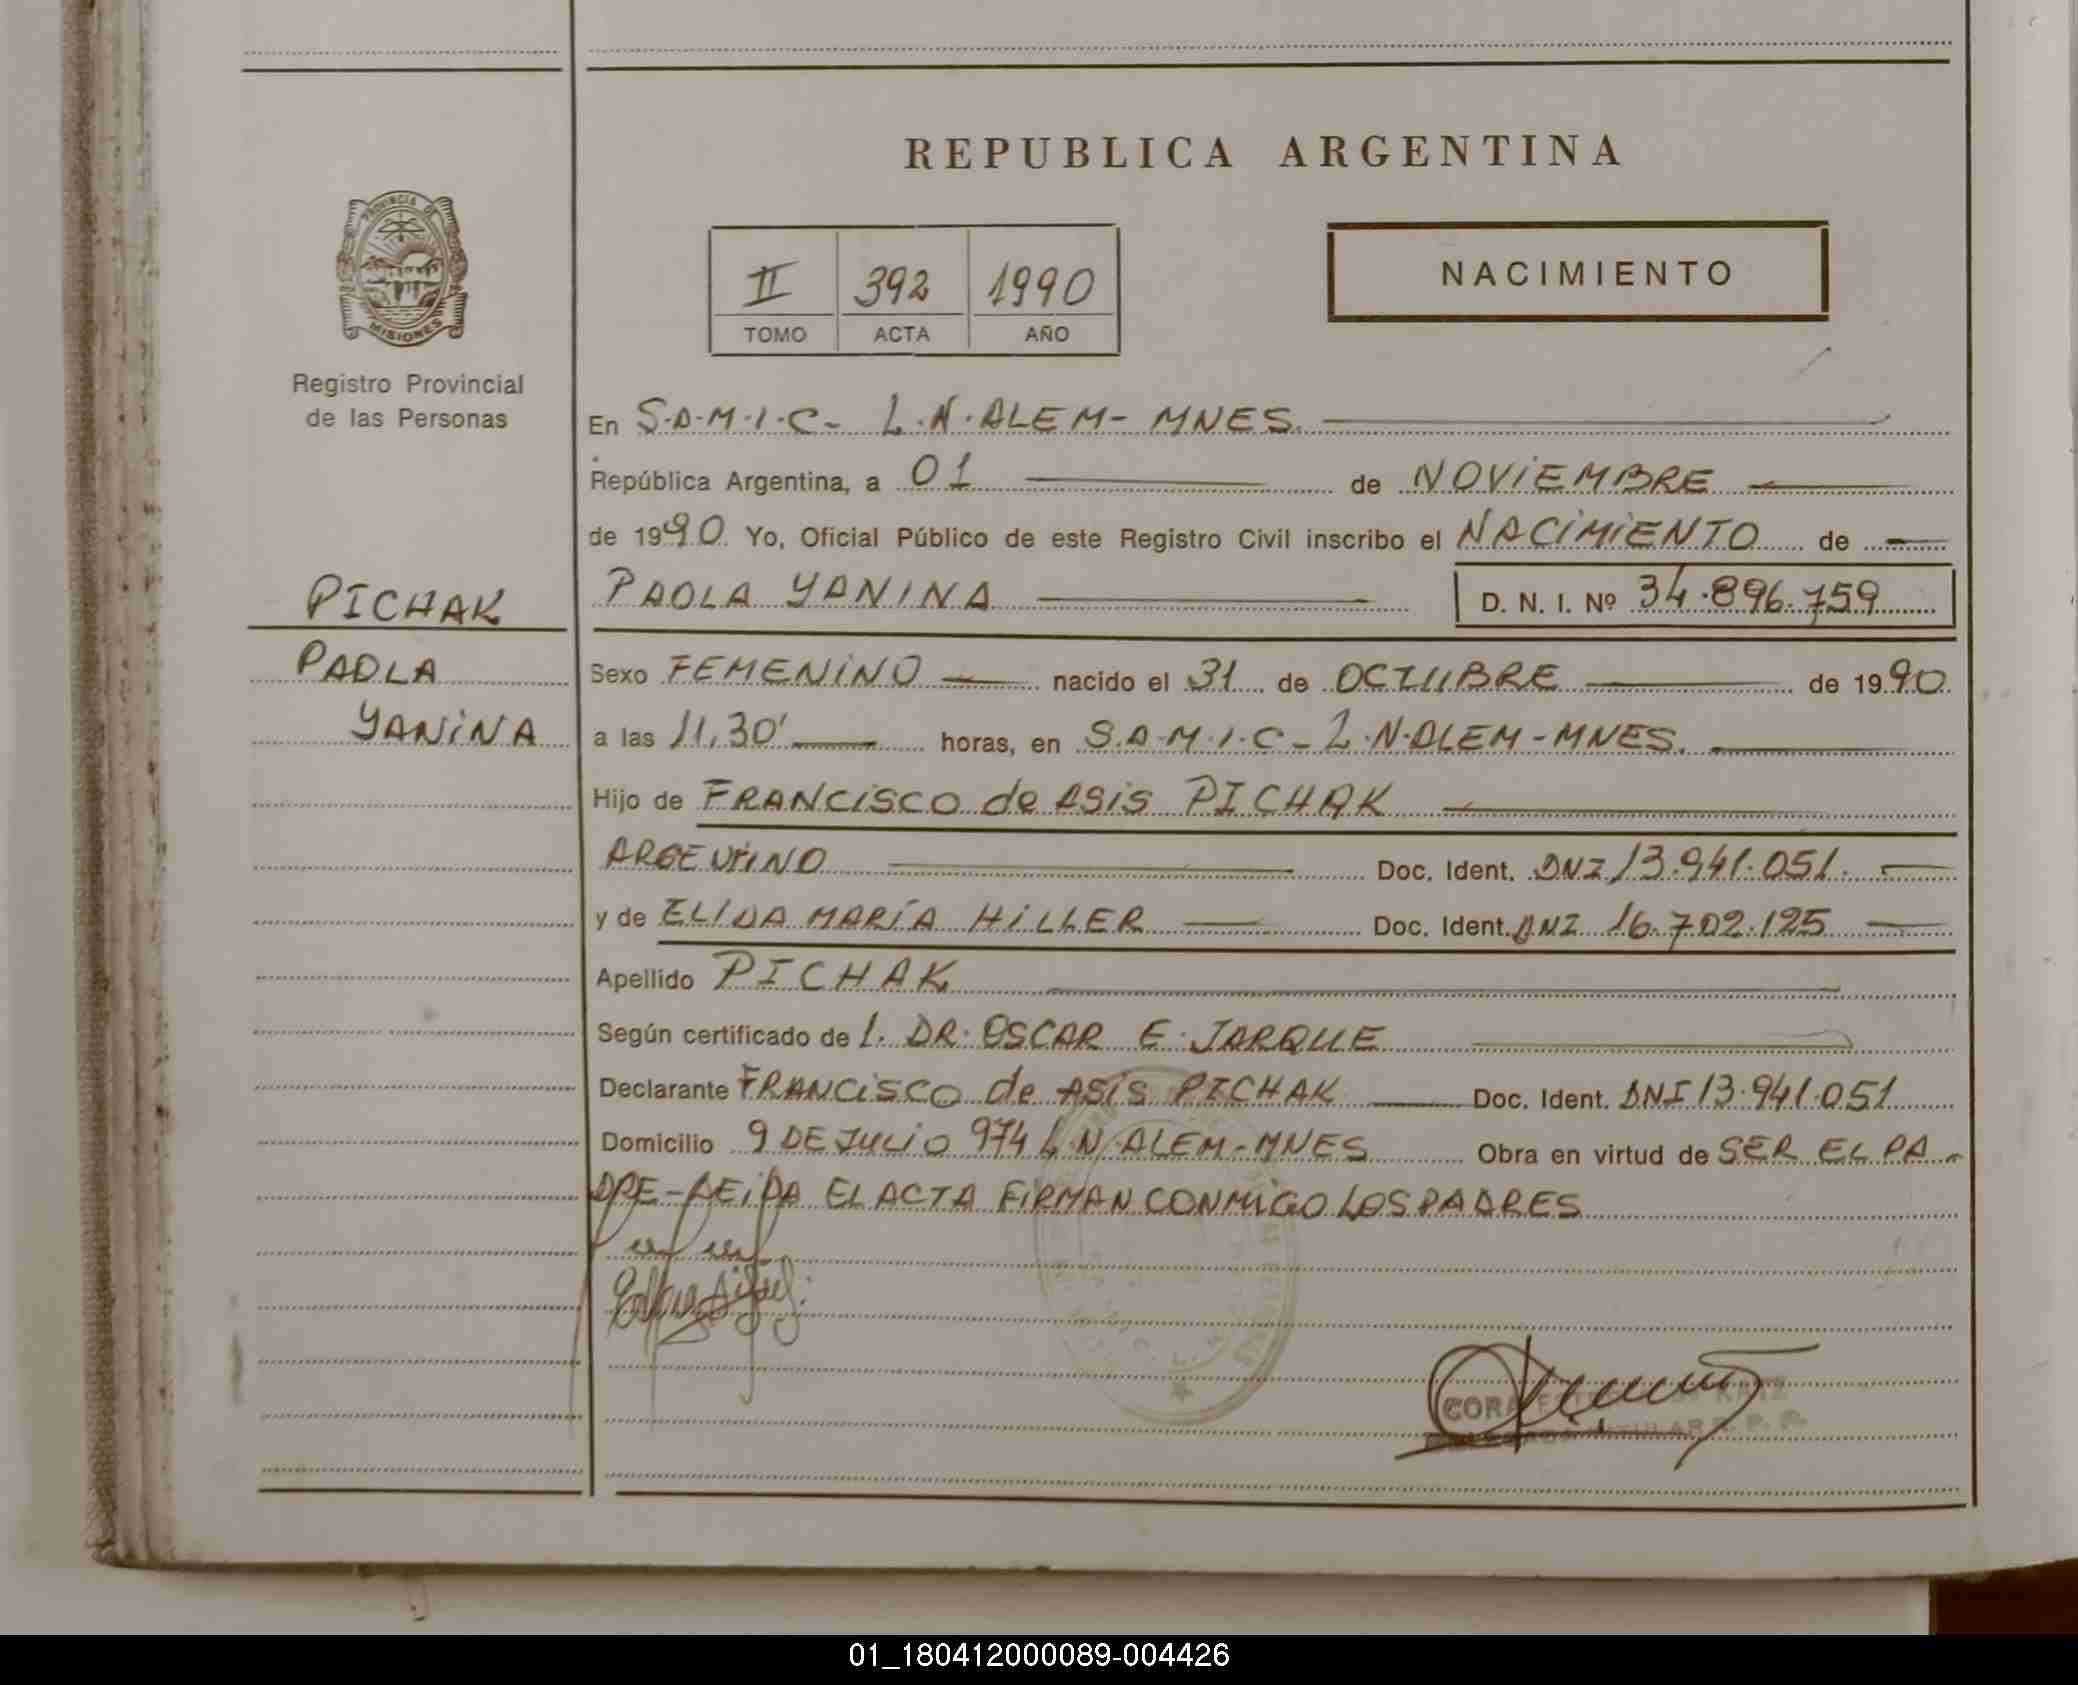 REPUBLICA ARGENTINA
PROVINCIA DE
MISIONES
Registro Provincial
de las Personas
II 392 1990
TOMO ACTA AÑO
NACIMIENTO
En S.A.M.I.C- L.N.ALEM- MNES.
República Argentina, a 01 de NOViEMBRE
de 1990 Yo, Oficial Público de este Registro Civil inscribo el NACiMiENTO de
PICHAK
PAOLA YANINA D. N. I. Nº 34.896.759
PAOLA
YANiNA
Sexo FEMENiNO nacido el 31 de OCTUBRE de 1990
a las 11,30' horas, en S.A.M.I.C- L.N.ALEM-MNES.
Hijo de FRANCiSCO de ASiS PICHAK
ARGENtiNO Doc. Ident. DNI 13.941.051.
y de ELIDA MARÍA HiLLER Doc. Ident. DNI 16.702.125
Apellido PICHAK
Según certificado de l. DR. OSCAR E. JARQUE
Declarante FRANCiSCO de ASiS PICHAK Doc. Ident. DNI 13.941.051
Domicilio 9 DE JULiO 974 L.N.ALEM-MNES Obra en virtud de SER EL PA-
DRE-LEiDA EL ACTA FiRMAN CONMiGO LOS PADRES
CORA
TITULAR R. P. P.
01_180412000089-004426